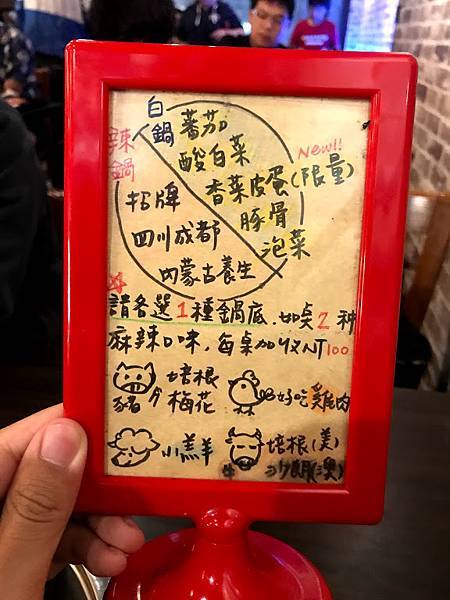 白鍋
蕃茄
酸白菜
New!!
香菜皮蛋(限量)
豚骨
泡菜
辣鍋
招牌
四川成都
內蒙古養生
請各選1種鍋底.如桌2种
麻辣口味,每桌加收NT100
豬
培根
梅花
好吃雞肉
小羔羊
牛
培根(美)
沙朗(澳)